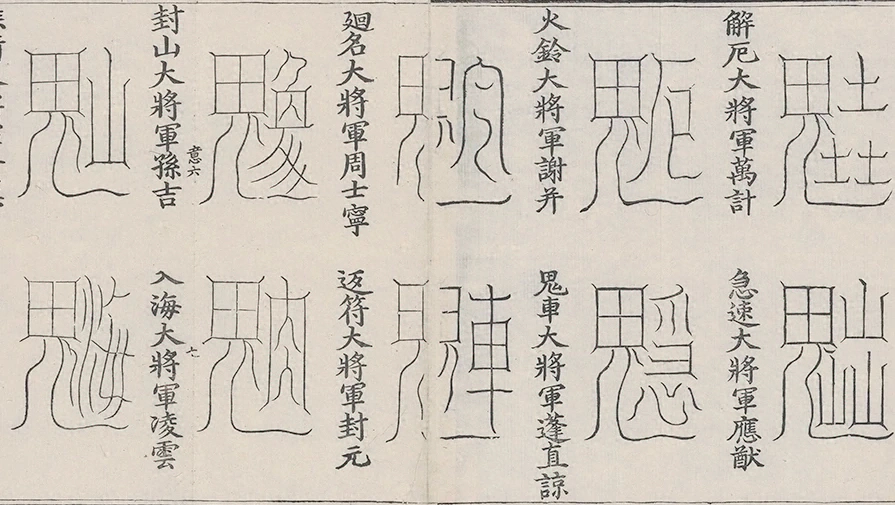 解厄大將軍萬計
急速大將軍應猷
火鈴大將軍謝并
鬼車大將軍蓬直諒
廻名大將軍周士寧
返符大將軍封元
意六
七
封山大將軍孫吉
入海大將軍凌雲